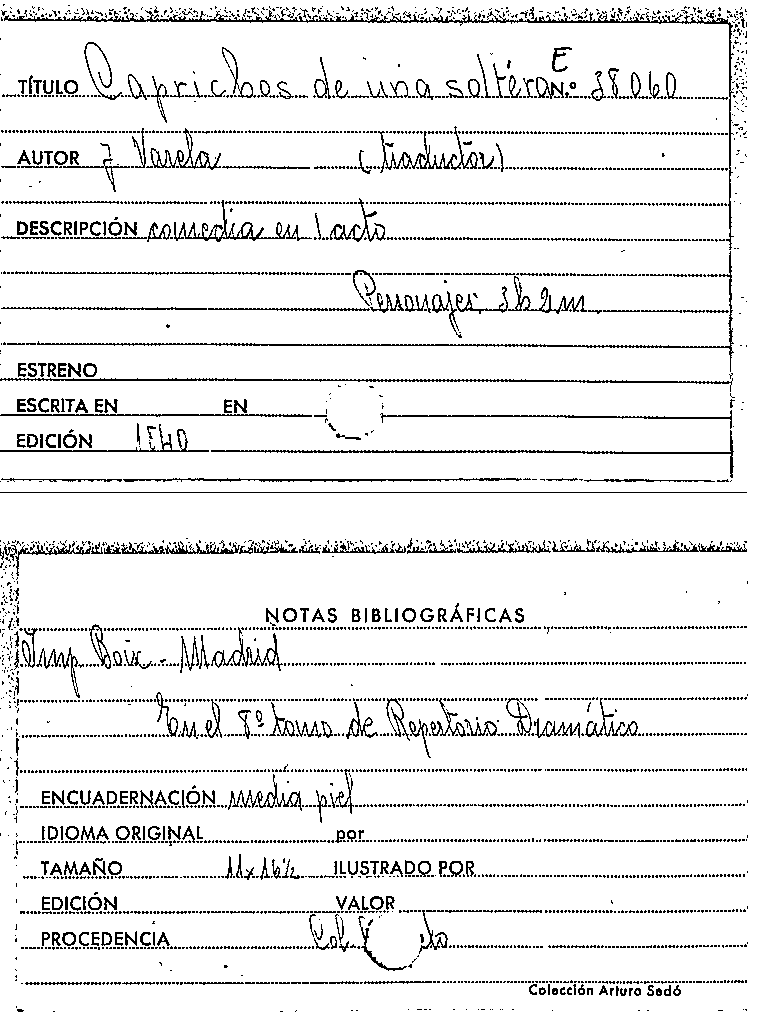 E
TÍTULO Caprichos de una soltéro N.º 38060
AUTOR J Varela (traductor)
DESCRIPCIÓN comedia en 1 acto
Personajes 3h 2m
ESTRENO
ESCRITA EN EN
EDICIÓN 1840
NOTAS BIBLIOGRÁFICAS
Imp Boix - Madrid
En el 8º tomo de Repertorio Dramático
ENCUADERNACIÓN media piel
IDIOMA ORIGINAL por
TAMAÑO 11x16½ ILUSTRADO POR
EDICIÓN VALOR
PROCEDENCIA Col
Colección Arturo Sedó